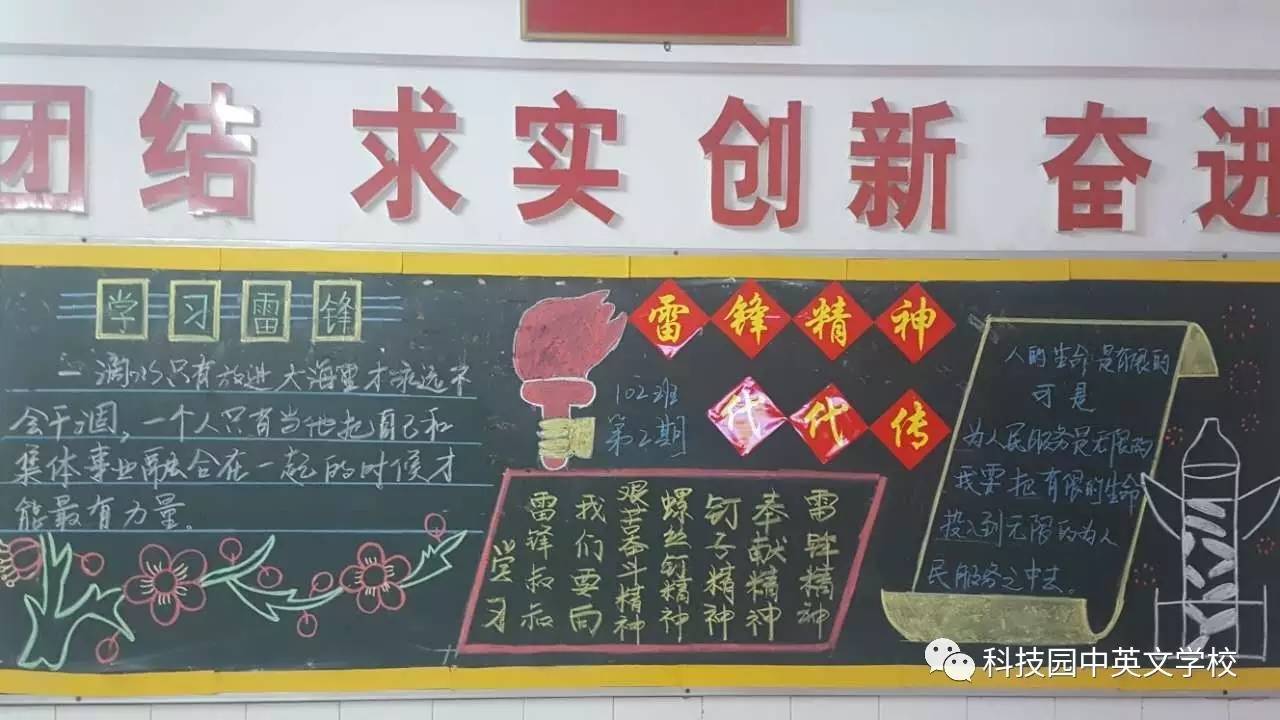 团结 求实 创新 奋进
学习雷锋
一滴水只有放进大海里才永远不
会干涸，一个人只有当他把自己和
集体事业融合在一起的时候才
能最有力量。
雷锋精神
代代传
102班
第2期
雷锋精神
奉献精神
钉子精神
螺丝钉精神
艰苦奋斗精神
我们要向
雷锋叔叔
学习
人的生命是有限的
可是
为人民服务是无限的
我要把有限的生命
投入到无限的为人
民服务之中去。
科技园中英文学校